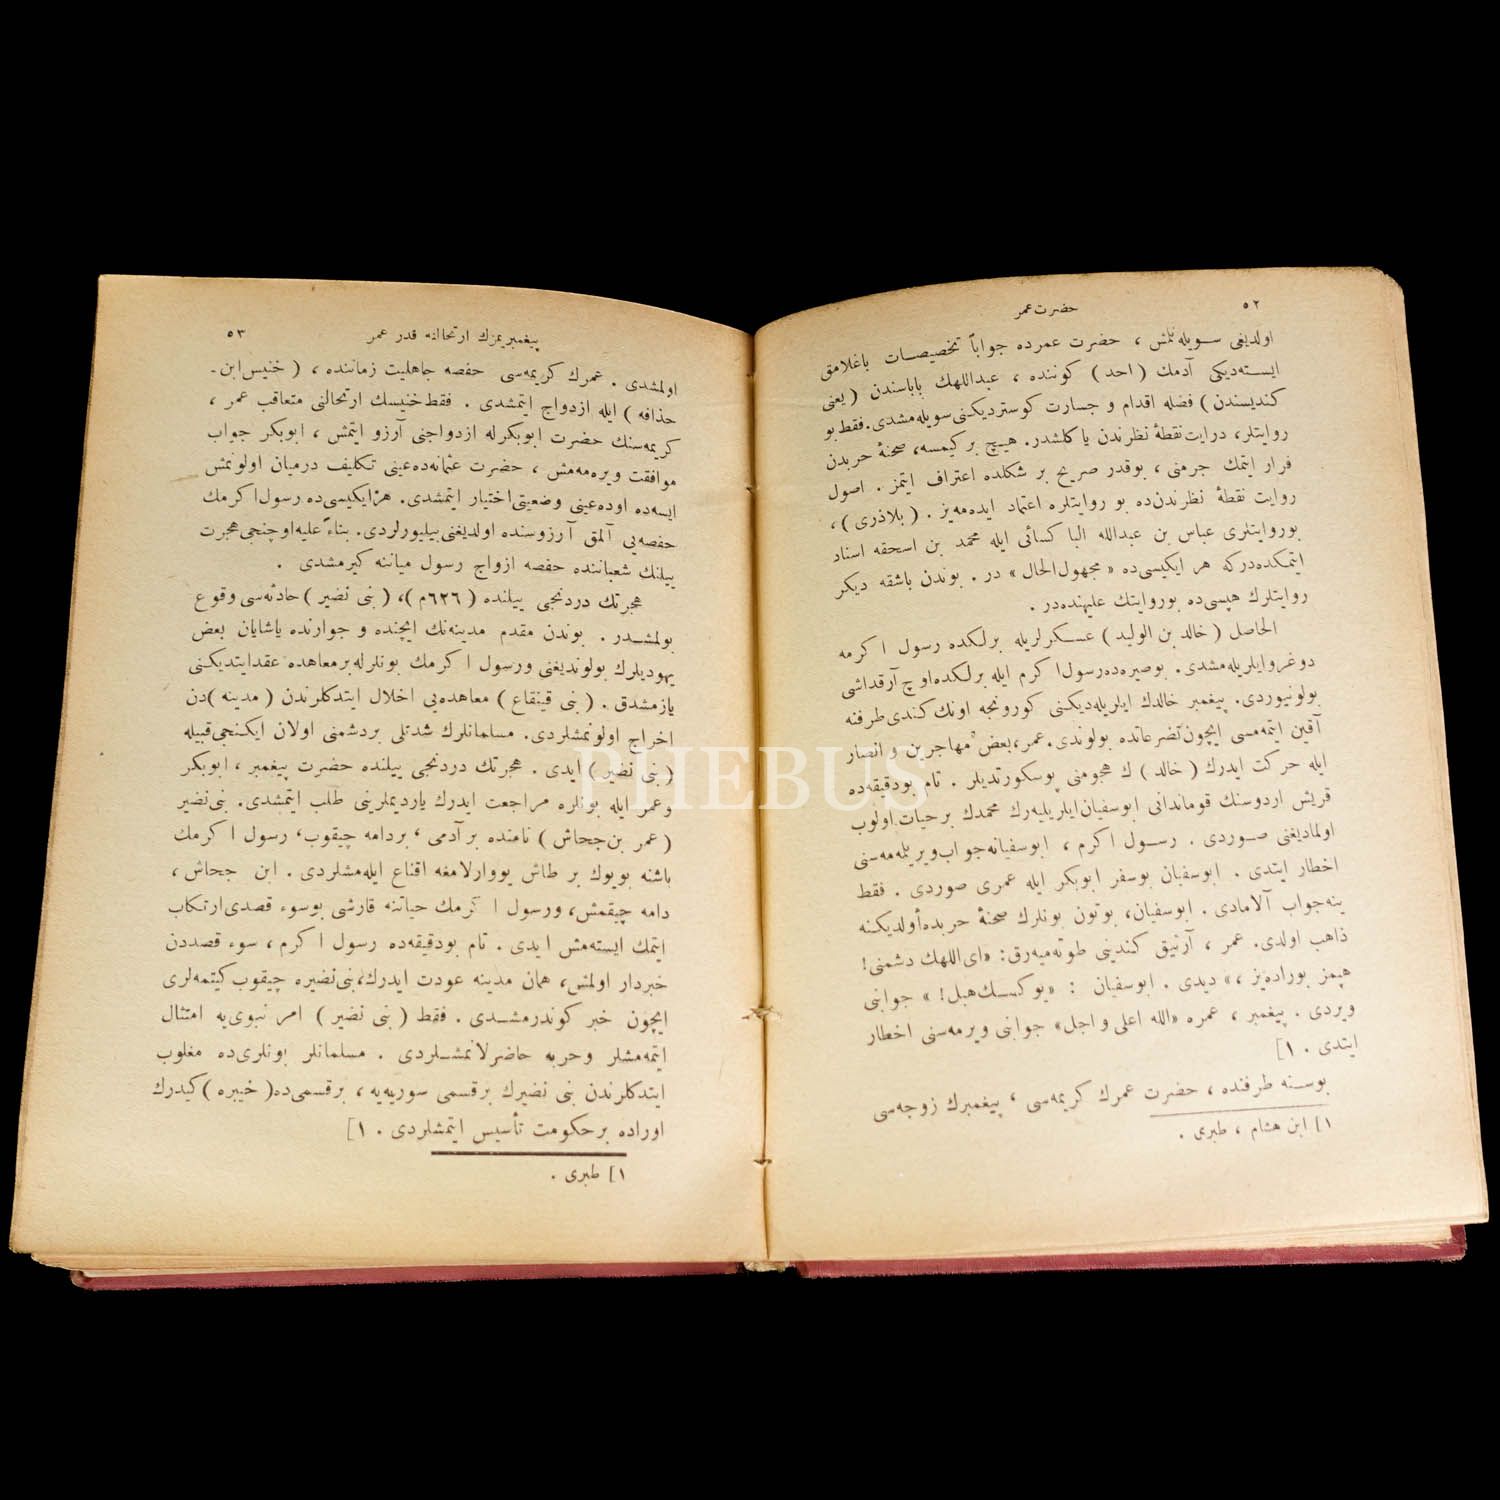 ٥٢
حضرت عمر
اولدیغی سویله‌نمش ، حضرت عمرده جواباً تخصیصات باغلامق
ایسته‌دیکی آدمك ( احد ) کوننده ، عبداللهك باباسندن ( یعنی
کندیسندن ) فضله اقدام و جسارت کوستردیکنی سویله‌مشدی. فقط بو
روایتلر، درایت نقطهٔ نظرندن یاکلشدر. هیچ بر کیمسه، صحنهٔ حربدن
فرار ایتمك جرمنی ، بوقدر صریح بر شکلده اعتراف ایتمز . اصول
روایت نقطهٔ نظرندن‌ده بو روایتلره اعتماد ایده‌مه‌یز . ( بلاذری ) ،
بوروایتلری عباس بن عبدالله البا کسائی ایله محمد بن اسحقه اسناد
ایتمکده‌درکه هر ایکیسی‌ده « مجهول‌الحال » در . بوندن باشقه دیکر
روایتلرك هپسی‌ده بوروایتك علیهنده‌در .
الحاصل ( خالد بن الولید ) عسکرلریله برلکده رسول اکرمه
دوغرو ایلریله‌مشدی. بوصیره‌ده رسول اکرم ایله برلکده اوچ آرقداشی
بولونیوردی. پیغمبر خالدك ایلریله‌دیکنی کورونجه اونك کندی طرفنه
آقین ایتمه‌مسی ایچون تضرعاتده بولوندی. عمر، بعض مهاجرین و انصار
ایله حرکت ایدرك ( خالد ) ك هجومنی پوسکورتدیلر . تام بودقیقه‌ده
قریش اردوسنك قوماندانی ابوسفیان ایلریلیه‌رك محمدك برحیات اولوب
اولمادیغنی صوردی . رسول اکرم ، ابوسفیانه جواب ویریلمه‌مه‌سنی
اخطار ایتدی . ابوسفیان بوسفر ابوبکر ایله عمری صوردی . فقط
ینه جواب آلامادی . ابوسفیان، بوتون بونلرك صحنهٔ حربده أولدیکنه
ذاهب اولدی. عمر ، آرتیق کندینی طوته‌میه‌رق: «ای اللهك دشمنی!
هپمز بوراده‌یز ،» دیدی . ابوسفیان : «یوکسك هبل! » جوابنی
ویردی . پیغمبر ، عمره «الله اعلی و اجل» جوابنی ویرمه‌سنی اخطار
ایتدی . ١]
بوسنه طرفنده ، حضرت عمرك کریمه‌سی ، پیغمبرك زوجه‌سی
١] ابن هشام ، طبری .
پیغمبریمزك ارتحالنه قدر عمر
٥٣
اولمشدی . عمرك کریمه‌سی حفصه جاهلیت زماننده ، ( خنیس ابن ـ
حذافه ) ایله ازدواج ایتمشدی . فقط خنیسك ارتحالنی متعاقب عمر ،
کریمه‌سنك حضرت ابوبکرله ازدواجنی آرزو ایتمش ، ابوبکر جواب
موافقت ویره‌مه‌مش ، حضرت عثمانه‌ده عینی تکلیف درمیان اولونمش
ایسه‌ده اوده عینی وضعیتی اختیار ایتمشدی. هر ایکیسی‌ده رسول اکرمك
حفصه‌یی آلمق آرزوسنده اولدیغنی بیلیورلردی. بناءً علیه اوچنجی هجرت
ییلنك شعباننده حفصه ازواج رسول میاننه کیرمشدی .
هجرتك دردنجی ییلنده ( ٦٢٦م )، ( بنی نضیر ) حادثه‌سی وقوع
بولمشدر . بوندن مقدم مدینه‌نك ایچنده و جوارنده یاشایان بعض
یهودیلرك بولوندیغنی و رسول اکرمك بونلرله برمعاهده عقد ایتدیکنی
یازمشدق . ( بنی قینقاع ) معاهده‌یی اخلال ایتدکلرندن ( مدینه )دن
اخراج اولونمشلردی. مسلمانلرك شدتلی بردشمنی اولان ایکنجی قبیله
( بنی نضیر ) ایدی . هجرتك دردنجی ییلنده حضرت پیغمبر ، ابوبکر
و عمر ایله بونلره مراجعت ایدرك یاردیملرینی طلب ایتمشدی. بنی نضیر
( عمر بن جحاش ) نامنده بر آدمی ، بردامه چیقوب ، رسول اکرمك
باشنه بویوك بر طاش یووارلامغه اقناع ایله‌مشلردی . ابن جحاش ،
دامه چیقمش، و رسول اکرمك حیاتنه قارشی بوسوء قصدی ارتکاب
ایتمك ایسته‌مش ایدی . تام بودقیقه‌ده رسول اکرم ، سوء قصددن
خبردار اولمش، همان مدینه عودت ایدرك، بنی نضیره چیقوب کیتمه‌لری
ایچون خبر کوندرمشدی . فقط ( بنی نضیر ) امر نبوی‌یه امتثال
ایتمه‌مشلر و حربه حاضرلانمشلردی . مسلمانلر بونلری‌ده مغلوب
ایتدکلرندن بنی نضیرك برقسمی سوریه‌یه ، برقسمی‌ده ( خیبره ) کیدرك
اوراده برحکومت تأسیس ایتمشلردی . ١]
١] طبری .
PHEBUS